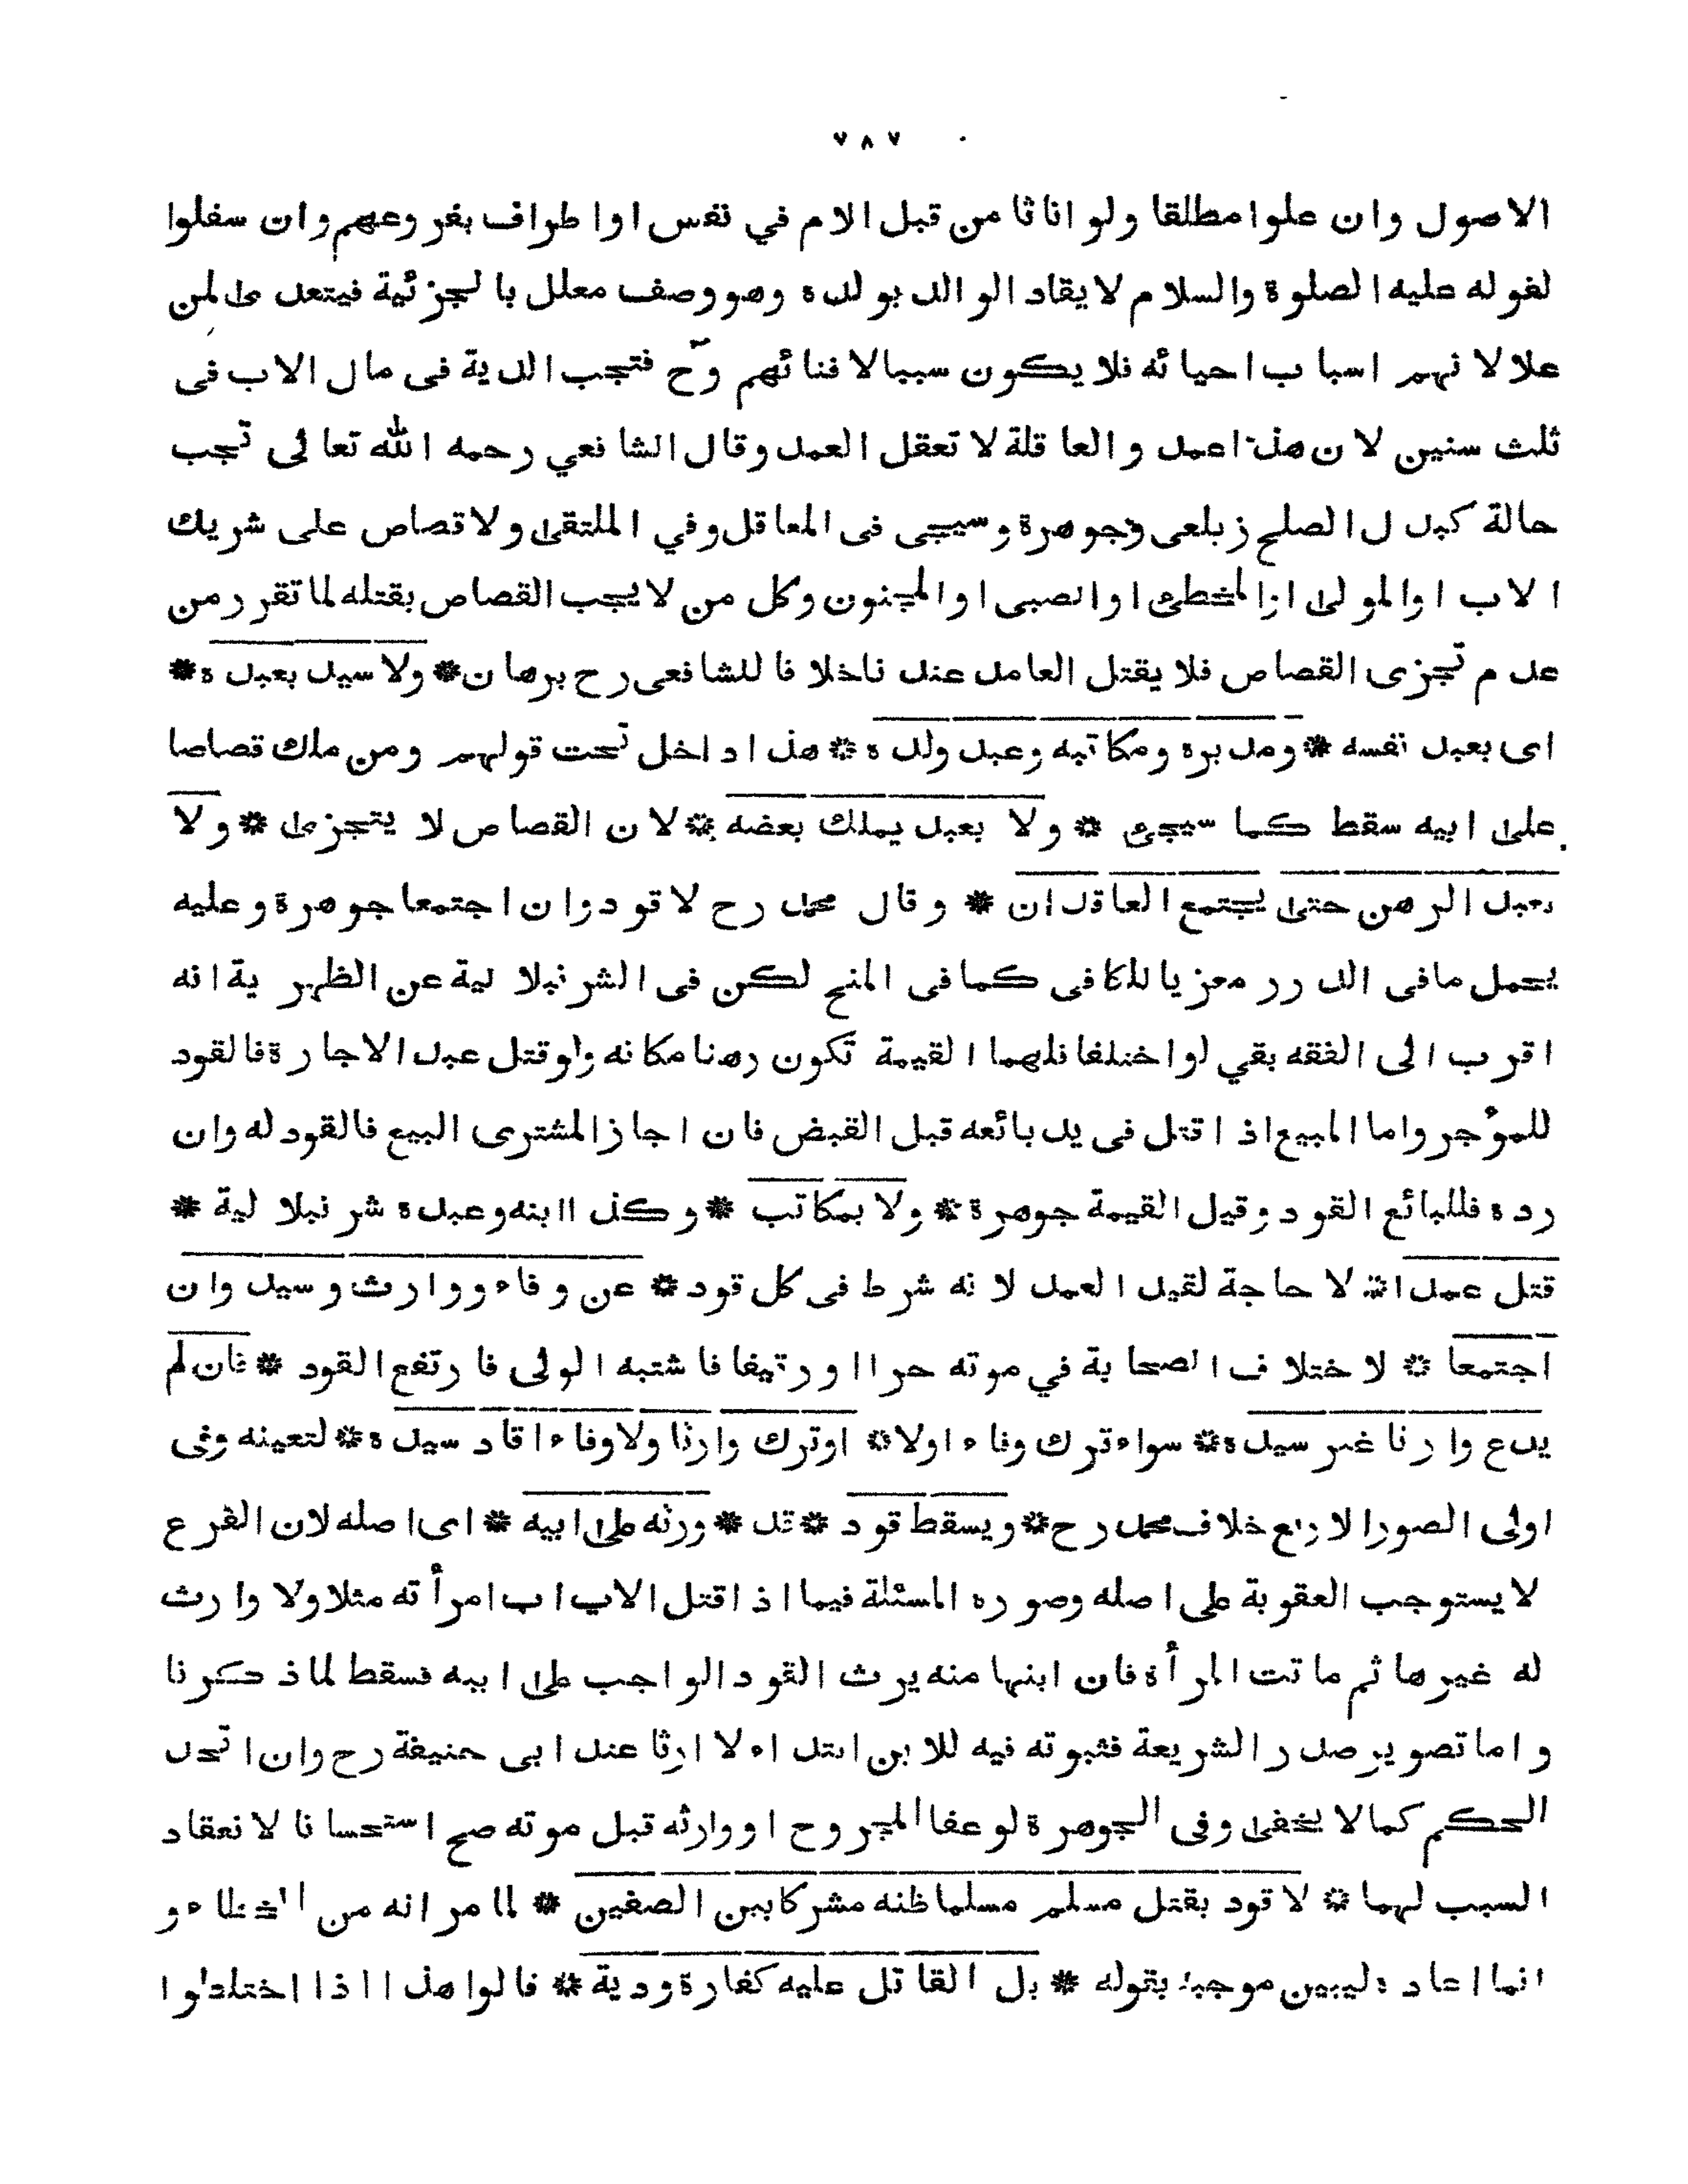 ٧٨٧
الاصول وان علوا مطلقا ولو اناثا من قبل الام في نفس اوا طراف بفروعهم وان سفلوا
لقوله عليه الصلوة والسلام لا يقاد الوالد بولده وهو وصف معلل بالجزئية فيتعدى لمن
علا لا نهم اسباب احيائه فلا يكون سببا لافنائهم وح فتجب الدية فى مال الاب فى
ثلث سنين لان هذا عمد والعاقلة لا تعقل العمد وقال الشافعي رحمه الله تعالى تجب
حالة كبدل الصلح زيلعى وجوهرة وسيجى فى المعاقل وفي الملتقى ولا قصاص على شريك
الاب اوالمولى اوالمخطئ اوالصبى اوالمجنون وكل من لا يجب القصاص بقتله لما تقرر من
عدم تجزى القصاص فلا يقتل العامد عندنا خلافا للشافعى رح برهان * ولا سيد بعبده *
اى بعبد نفسه * ومدبره ومكاتبه وعبد ولده * هذا داخل تحت قولهم ومن ملك قصاصا
على ابيه سقط كما سيجئ * ولا بعبد يملك بعضه * لان القصاص لا يتجزى * ولا
بعبد الرهن حتى يجتمع العاقدان * وقال محمد رح لا قود وان اجتمعا جوهرة وعليه
يحمل مافى الدرر معزيا للكافى كما فى المنح لكن فى الشرنبلا لية عن الظهيرية انه
اقرب الى الفقه بقي لو اختلفا فلهما القيمة تكون رهنا مكانه ولو قتل عبد الاجارة فالقود
للمؤجر واما المبيع اذا قتل فى يد بائعه قبل القبض فان اجاز المشترى البيع فالقود له وان
رده فللبائع القود وقيل القيمة جوهرة * ولا بمكاتب * وكذا ابنه وعبده شرنبلا لية *
قتل عمدا * لا حاجة لقيد العمد لانه شرط فى كل قود * عن وفاء ووارث وسيد وان
اجتمعا * لاختلاف الصحابة في موته حرا او رقيقا فاشتبه الولى فارتفع القود * فان لم
يدع وارثا غير سيده * سواء ترك وفاء اولا * اوترك وارثا ولاوفاء اقاد سيده * لتعينه وفى
اولى الصور الاربع خلاف محمد رح * ويسقط قود * قد * ورثه على ابيه * اى اصله لان الفرع
لا يستوجب العقوبة على اصله وصوره المسئلة فيما اذا قتل الاب اب امرأته مثلا ولا وارث
له غيرها ثم ماتت المرأة فان ابنها منه يرث القود الواجب على ابيه فسقط لما ذكرنا
واما تصوير صدر الشريعة فثبوته فيه للابن ابتداء لا ارثا عند ابى حنيفة رح وان اتحد
الحكم كمالا يخفى وفى الجوهرة لو عفا المجروح او وارثه قبل موته صح استحسانا لانعقاد
السبب لهما * لا قود بقتل مسلم مسلما ظنه مشركا بين الصفين * لما مر انه من الخطاء و
انما اعاده ليبين موجبه بقوله * بل القاتل عليه كفارة ودية * قالوا هذا اذا اختلطوا